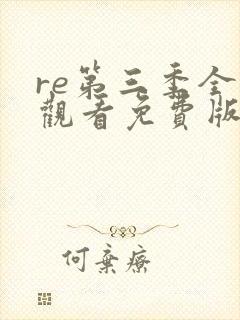 re第三季全
觀看免費版
何棄療